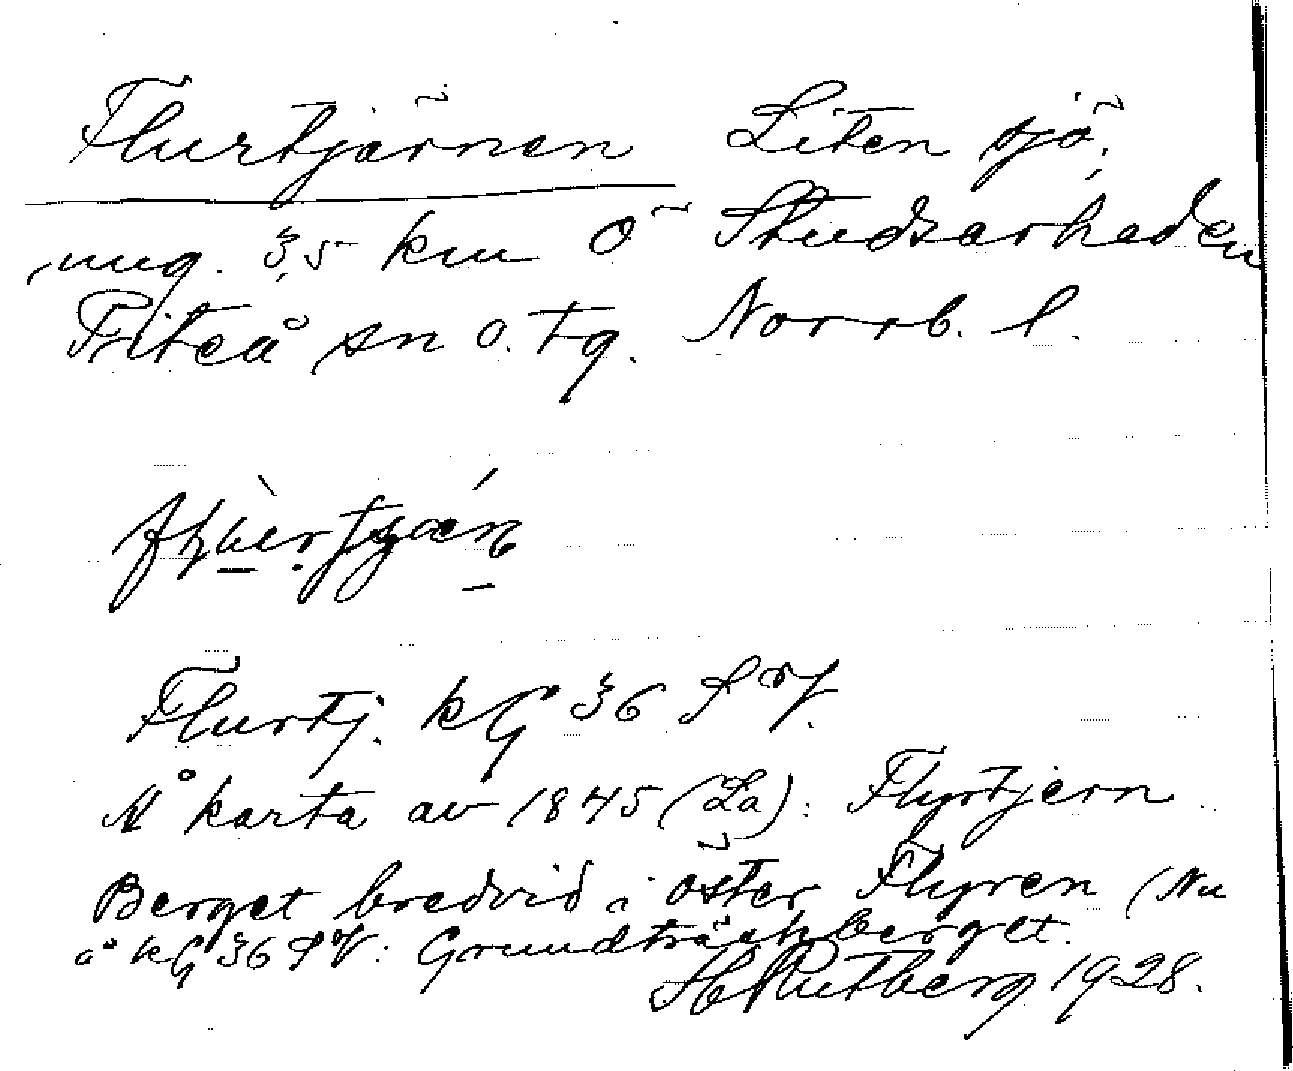 Flurtjärnen Liten sjö,
ung. 3,5 km Ö Studsarheden
Piteå sn o. tg. Norrb. l.
Flurtj. kG 36 SV.
Å karta av 1845 (La): Flyrtjern
Berget bredvid i öster Flyren (Nu
å kG 36 SV: Grundträskberget.
H Rutberg 1928.